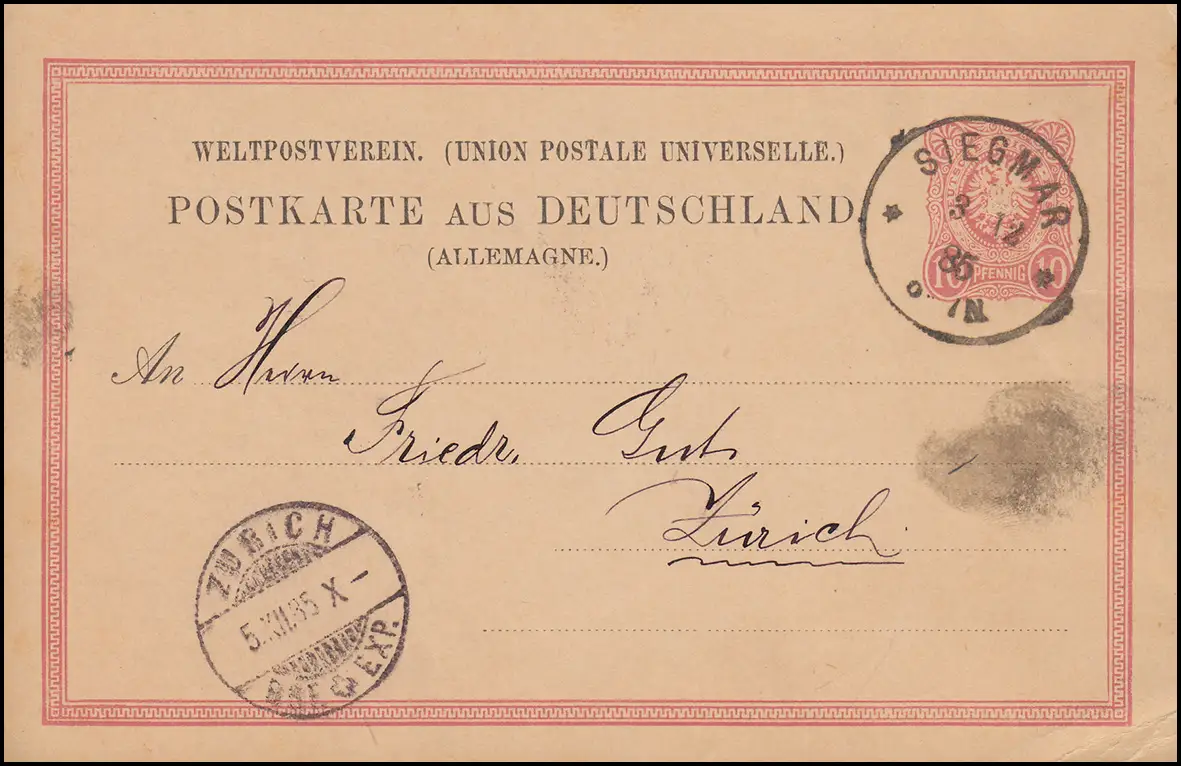 WELTPOSTVEREIN. (UNION POSTALE UNIVERSELLE.)
POSTKARTE AUS DEUTSCHLAND.
(ALLEMAGNE.)
SIEGMAR
3 12
85
10 PFENNIG 10
An Herrn
Friedr. Gut
Zürich
ZÜRICH
5.XII.85 X –
EXP.